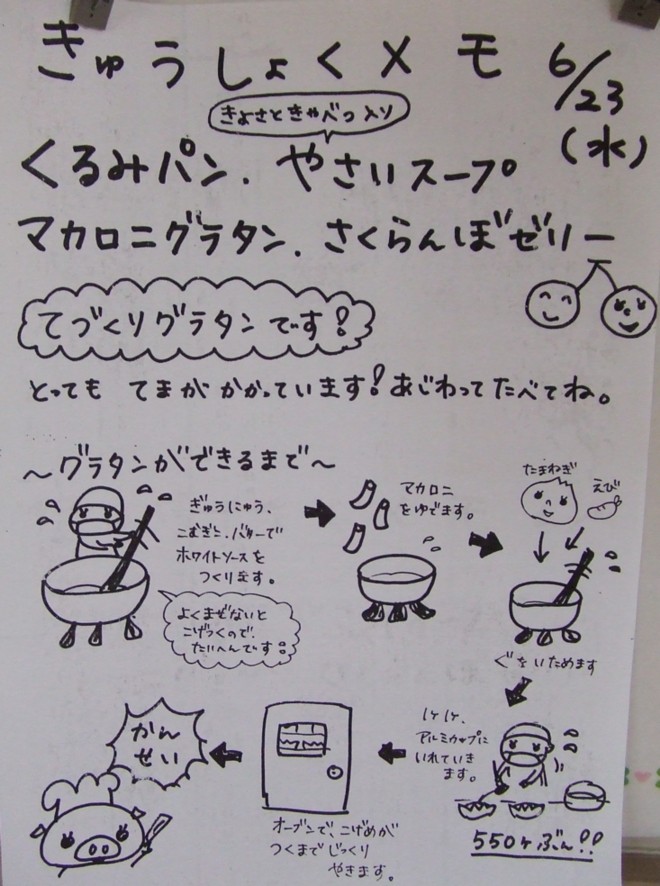 きゅうしょくメモ 6/23
(水)
きよさときゃべつ入り
くるみパン. やさいスープ
マカロニグラタン. さくらんぼゼリー
てづくりグラタンです!
とっても てまが かかっています!あじわってたべてね。
~グラタンができるまで~
ぎゅうにゅう、
こむぎこ、バターで
ホワイトソースを
つくります。
よくまぜないと
こげつくので、
たいへんです!!
マカロニ
をゆでます。
たまねぎ
えび
ぐをいためます
1ヶ1ヶ、
アルミカップに
いれていき
ます。
550ヶぶん!!
オーブンで、こげめが
つくまでじっくり
やきます。
かん
せい